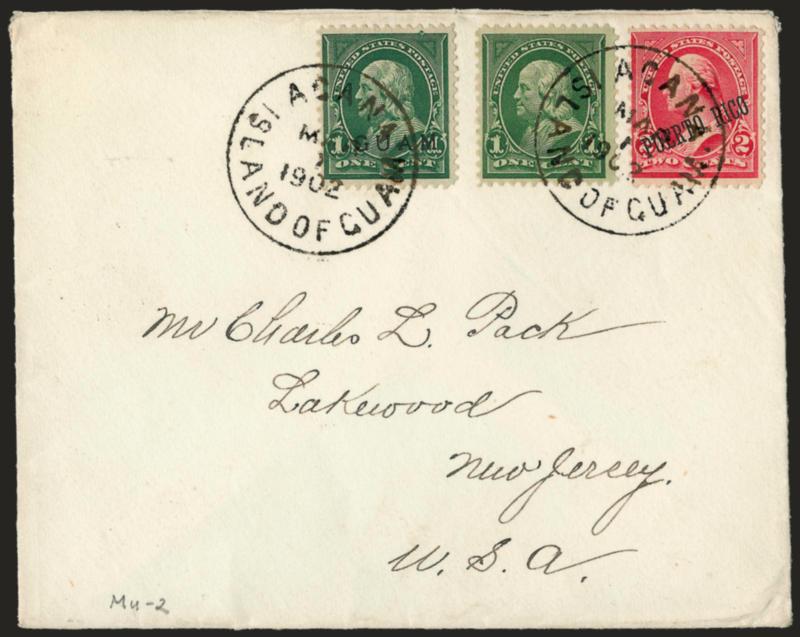 UNITED STATES POSTAGE
1 GUAM
ONE CENT
UNITED STATES POSTAGE
1 1
ONE CENT
UNITED STATES POSTAGE
PUERTO RICO
2
TWO CENTS
AGANA
1902
ISLAND OF GUAM
AGANA
1902
ISLAND OF GUAM
Mr Charles L. Pack
Lakewood
New Jersey.
U. S. A.
Mu-2